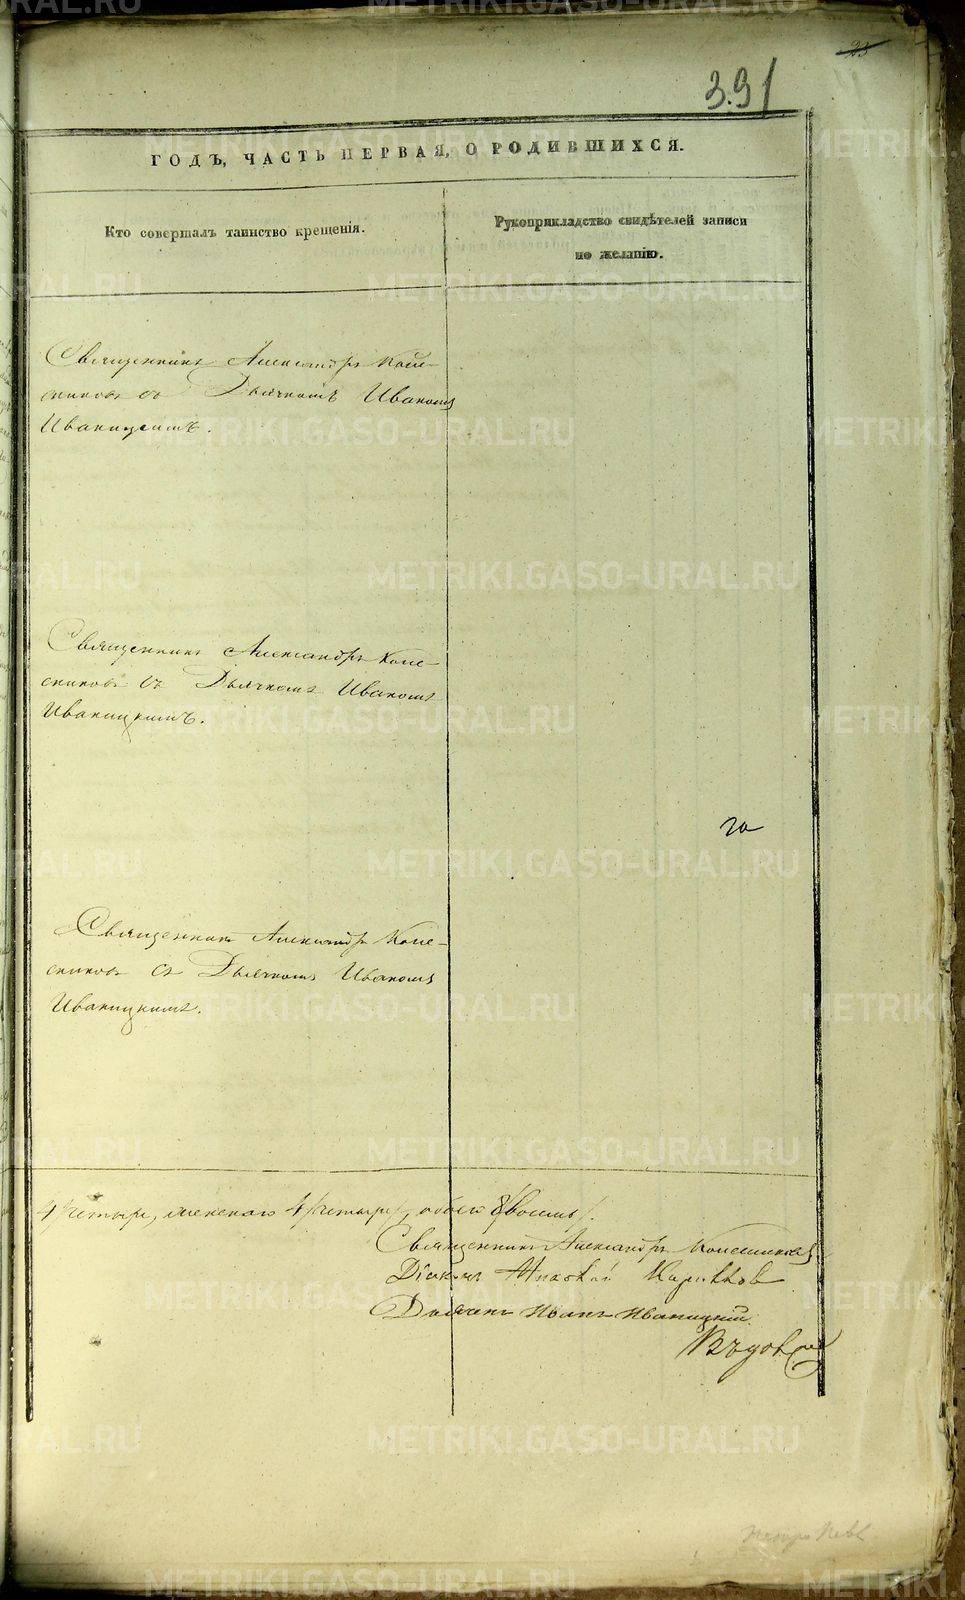 23
391
ГОДЪ, ЧАСТЬ ПЕРВАЯ, О РОДИВШИХСЯ.
Кто совершалъ таинство крещенія.
Рукоприкладство свидѣтелей записи
по желанію.
Священникъ Александръ Коле-
сниковъ съ Дьячкомъ Иваномъ
Иваницкимъ.
Священникъ Александръ Коле-
сниковъ съ Дьячкомъ Иваномъ
Иваницкимъ.
го
Священникъ Александръ Коле-
сниковъ съ Дьячкомъ Иваномъ
Иваницкимъ.
4/четыре/, женскаго 4/четыре/, обоего 8/восемь/.
Священникъ Александръ Колесниковъ
Діаконъ
Дьячекъ Иванъ Иваницкій.
METRIKI.GASO-URAL.RU